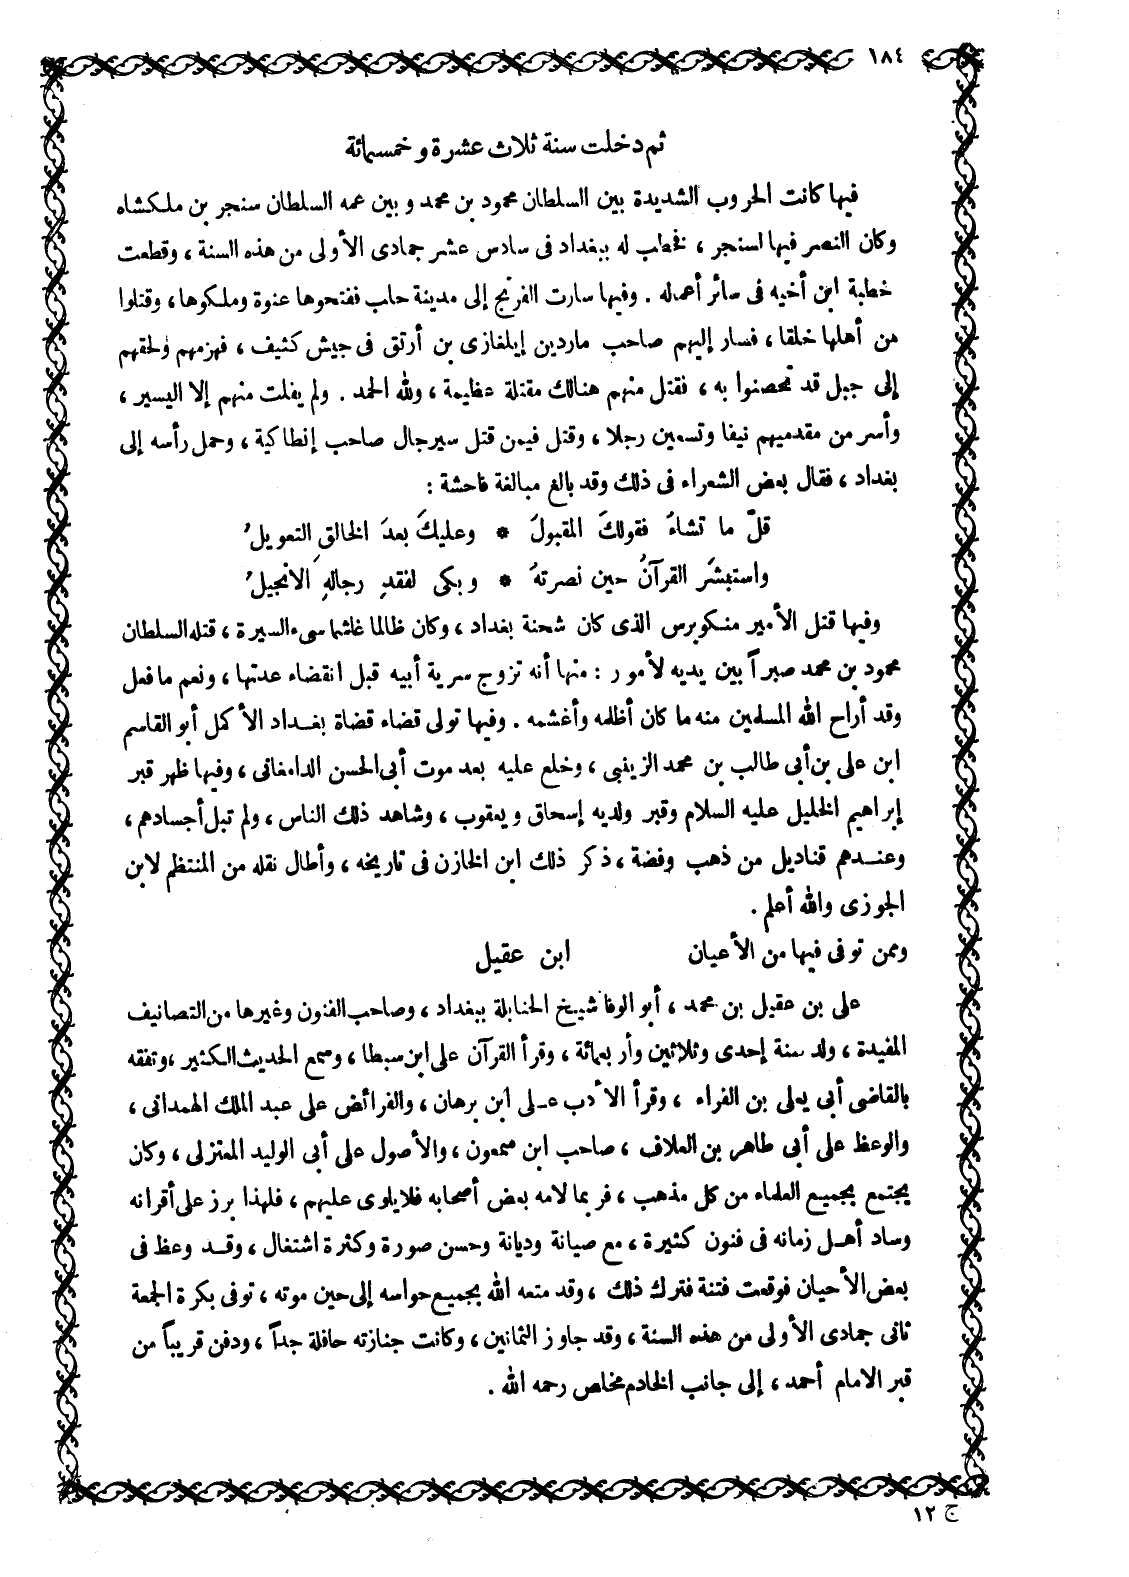 ١٨٤
ثم دخلت سنة ثلاث عشرة وخمسمائة
فيها كانت الحروب الشديدة بين السلطان محمود بن محمد وبين عمه السلطان سنجر بن ملكشاه
وكان النصر فيها لسنجر ، فخطب له ببغداد فى سادس عشر جمادى الأولى من هذه السنة ، وقطعت
خطبة ابن أخيه فى سائر أعماله . وفيها سارت الفرنج إلى مدينة حلب ففتحوها عنوة وملكوها ، وقتلوا
من أهلها خلقا ، فسار إليهم صاحب ماردين إيلغازى بن أرتق فى جيش كثيف ، فهزمهم ولحقهم
إلى جبل قد تحصنوا به ، فقتل منهم هنالك مقتلة عظيمة ، ولله الحمد . ولم يفلت منهم إلا اليسير ،
وأسر من مقدميهم نيفا وتسعين رجلا ، وقتل فيمن قتل سيرجال صاحب إنطاكية ، وحمل رأسه إلى
بغداد ، فقال بعض الشعراء فى ذلك وقد بالغ مبالغة فاحشة :
قلّ ما تشاءُ فقولكَ المقبولُ * وعليكَ بعدَ الخالقِ التعويلُ
واستبشَر القرآنُ حين نصرتهُ * وبكى لفقدِ رجالهِ الانجيلُ
وفيها قتل الأمير منكوبرس الذى كان شحنة بغداد ، وكان ظالما غاشما سىء السيرة ، قتله السلطان
محمود بن محمد صبراً بين يديه لأمور : منها أنه تزوج سرية أبيه قبل انقضاء عدتها ، ونعم ما فعل
وقد أراح الله المسلمين منه ما كان أظلمه وأغشمه . وفيها تولى قضاء قضاة بغداد الأكمل أبو القاسم
ابن على بن أبى طالب بن محمد الزينبى ، وخلع عليه بعد موت أبى الحسن الدامغانى ، وفيها ظهر قبر
إبراهيم الخليل عليه السلام وقبر ولديه إسحاق ويعقوب ، وشاهد ذلك الناس ، ولم تبل أجسادهم ،
وعندهم قناديل من ذهب وفضة ، ذكر ذلك ابن الخازن فى تاريخه ، وأطال نقله من المنتظم لابن
الجوزى والله أعلم .
وممن توفى فيها من الأعيان ابن عقيل
على بن عقيل بن محمد ، أبو الوفا شيخ الحنابلة ببغداد ، وصاحب الفنون وغيرها من التصانيف
المفيدة ، ولد سنة إحدى وثلاثين وأربعمائة ، وقرأ القرآن على ابن سبطا ، وسمع الحديث الكثير ، وتفقه
بالقاضى أبى يعلى بن الفراء ، وقرأ الأدب على ابن برهان ، والفرائض على عبد الملك الهمدانى ،
والوعظ على أبى طاهر بن العلاف ، صاحب ابن سمعون ، والأصول على أبى الوليد المعتزلى ، وكان
يجتمع بجميع العلماء من كل مذهب ، فربما لامه بعض أصحابه فلا يلوى عليهم ، فلهذا برز على أقرانه
وساد أهل زمانه فى فنون كثيرة ، مع صيانة وديانة وحسن صورة وكثرة اشتغال ، وقد وعظ فى
بعض الأحيان فوقعت فتنة فترك ذلك ، وقد متعه الله بجميع حواسه إلى حين موته ، توفى بكرة الجمعة
ثانى جمادى الأولى من هذه السنة ، وقد جاوز الثمانين ، وكانت جنازته حافلة جداً ، ودفن قريباً من
قبر الامام أحمد ، إلى جانب الخادم مخلص رحمه الله .
ج ١٢